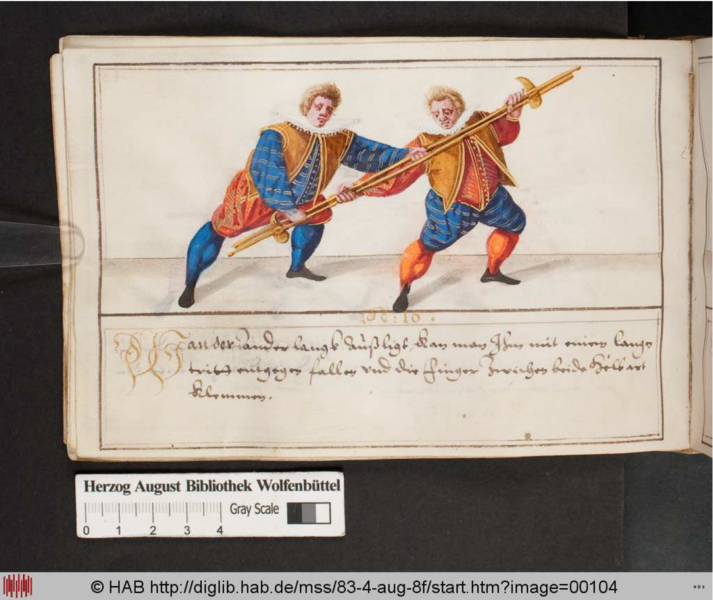 N: 10.
Wan der ander langs außligt kan man Ihm mit einen lang
tritt entgegen fallen vnd die finger zwischen beide Helbart
klemmen.
Herzog August Bibliothek Wolfenbüttel
0 1 2 3 4 Gray Scale
© HAB http://diglib.hab.de/mss/83-4-aug-8f/start.htm?image=00104